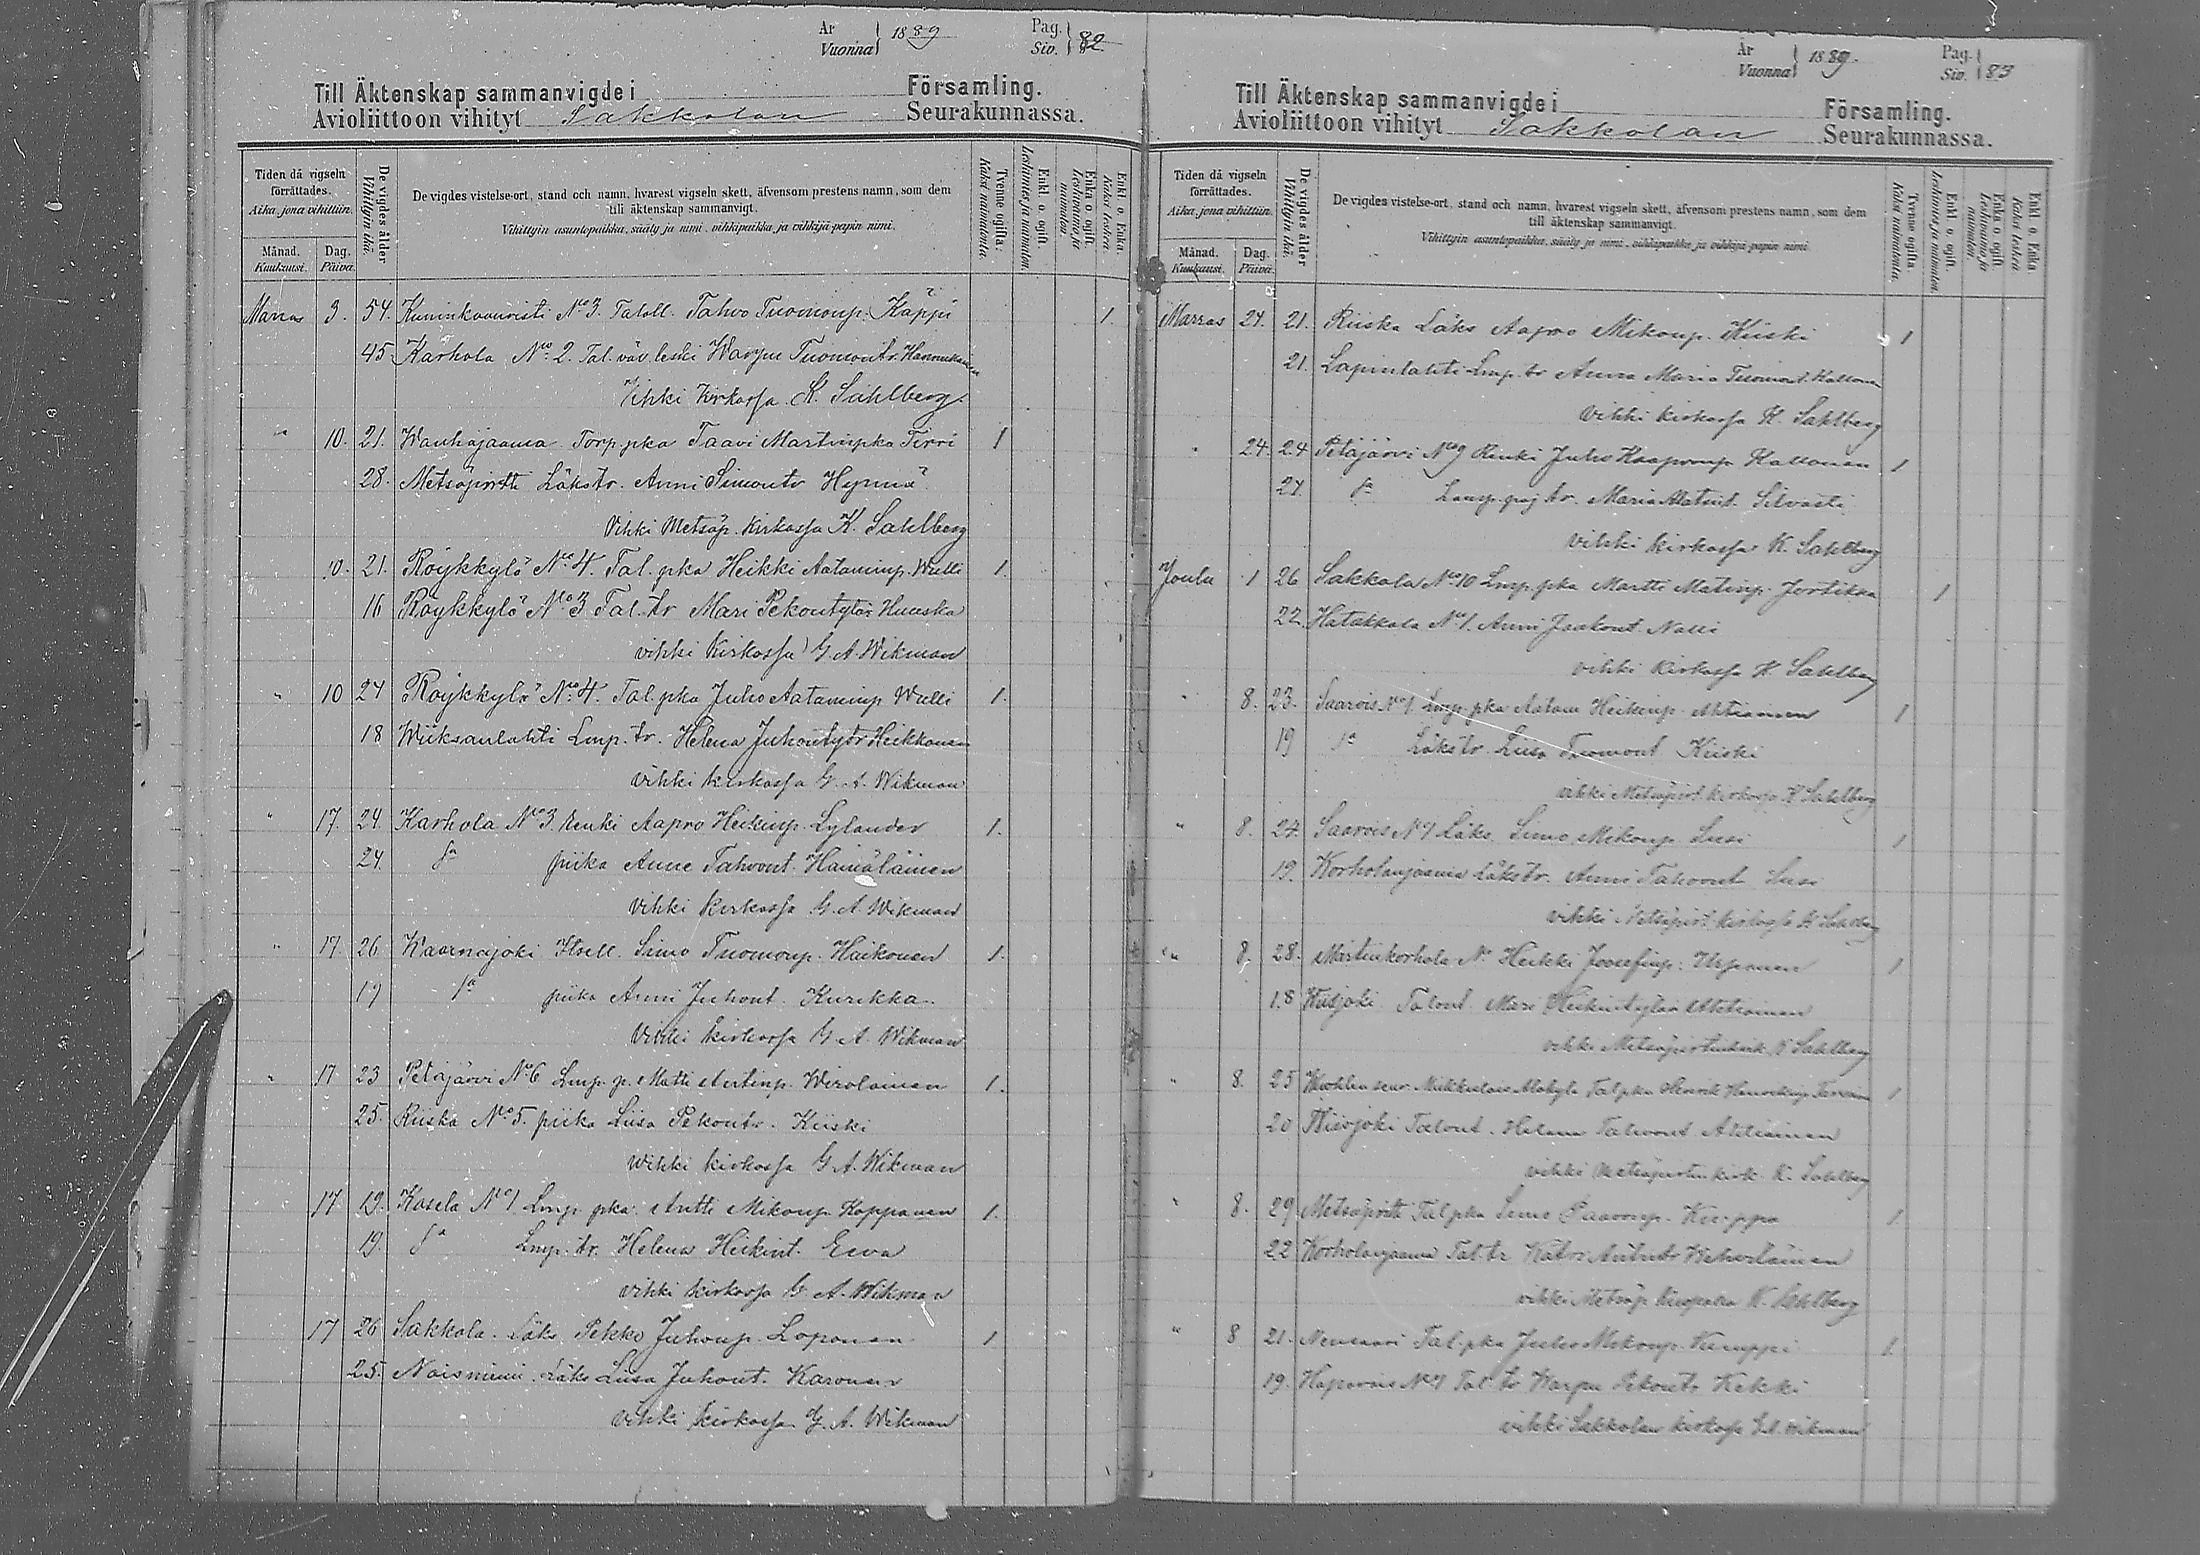 År Vuonna 1889 Pag. Siv. 82
Till Äktenskap sammanvigde i Församling.
Avioliittoon vihityt Sakkolan Seurakunnassa.
Tiden då vigseln förrättades.
Aika, jona vihittiin.
Månad. Kuukausi.
Dag. Päivä.
De vigdes ålder
Vihittyin ikä.
De vigdes vistelse-ort, stand och namn, hvarest vigseln skett, äfvensom prestens namn, som dem
till äktenskap sammanvigt.
Vihittyin asuntopaikka, sääty ja nimi, vihkipaikka ja vihkijä-papin nimi.
Tvenne ogifta:
Kaksi naimatonta
Enkl. o. ogift.
Leskimies ja naimaton.
Enka o. ogift.
Leskivaimo ja naimaton.
Enkl. o. Enka.
Kaksi leskeä.
Marras 3. 54. Kuninkaanristi No 3. Taloll. Tahvo Tuomonp. Käppi 1.
45 Karhola No 2. Tal. väv. leski Warpu Tuomontr. Hannukainen
Vihki Kirkossa K. Sahlberg.
" 10. 21. Wanhajaama Torp. pka Taavi Martinpka Tirri 1
28. Metsäpirtti Läkstr. Anni Simontr Hynnä
Vihki Metsäp. Kirkossa K. Sahlberg
10. 21. Röykkylö No 4. Tal. pka Heikki Aataminp. Wulli 1.
16 Röykkylö No 3 Tal. tr Mari Pekontytär Huuska
vihki Kirkossa G. A. Wikman
" 10 24 Röykkylö No 4. Tal. pka Juho Aataminp Wulli 1.
18 Wiiksanlahti Lmp. tr. Helena Juhontytr Heikkonen
vihki kirkossa G. A. Wikman
" 17. 24. Karhola No 3 Renki Aapro Heikinp. Lylander 1.
24. Sa piika Anne Tahvont. Hämäläinen
vihki kirkossa G. A. Wikman
" 17. 26 Kaarnajoki Itsell. Simo Tuomonp. Haikonen 1.
19 Sa piika Anni Juhont. Kurikka
Vihki kirkossa G. A. Wikman
" 17 23 Petäjärvi No 6 Lmp. p. Matti Antinp. Wirolainen 1.
25. Riiska No 5. piika Liisa Pekontr. Kiiski
Wihki kirkossa G. A. Wikman
17 19. Kasela No 1 Lmp. pka. Antti Mikonp. Kopponen 1.
19. Sa Lmp. tr. Helena Heikint. Eeva
vihki kirkossa G. A. Wikman
17 26 Sakkola. Läks Pekko Juhonp. Loponen 1
25. Noisniemi. Läks Liisa Juhont. Karonen
vihki kirkossa G. A. Wikman
År Vuonna 1889. Pag. Siv. 83
Till Äktenskap sammanvigde i Församling.
Avioliittoon vihityt Sakkolan Seurakunnassa.
Tiden då vigseln förrättades.
Aika, jona vihittiin.
Månad. Kuukausi.
Dag. Päivä.
De vigdes ålder
Vihittyin ikä.
De vigdes vistelse-ort, stand och namn, hvarest vigseln skett, äfvensom prestens namn, som dem
till äktenskap sammanvigt.
Vihittyin asuntopaikka, sääty ja nimi, vihkipaikka ja vihkijä-papin nimi.
Tvenne ogifta
Kaksi naimatonta.
Enkl. o. ogift.
Leskimies ja naimaton.
Enka o. ogift.
Leskivaimo ja naimaton.
Enkl. o. Enka
Kaksi leskeä
Marras 24. 21. Riiska Läks Aapro Mikonp. Kiiski 1
21. Lapinlahti Lmp. tr Anna Maria Tuomont. Kallonen
Vihki kirkossa K. Sahlberg
" 24. 24 Petäjärvi No 9 Renki Juho Kaaponp Kallonen 1
24. Sa Lmp. tr. Maria Matint. Silvasti
vihki kirkossa K. Sahlberg
Joulu 1 26 Sakkola No 10 Lmp. pka Martti Matinp. Jortikka 1
22 Hatakkala No 1. Anni Jaakont Nalli
vihki kirkossa K. Sahlberg
" 8. 23. Saarois No 1 Lmp. pka Aatam Heikinp. Ahtiainen 1
19 Sa Läkstr Liisa Tuomont Kiiski
vihki Metsäpirt. kirkossa K Sahlberg
" 8. 24. Saarois No 1 Läks. Simo Mikonp. Susi 1
19. Korholanjaama Läkstr. Anni Tahvont Susi
vihki Metsäpirt. kirkossa K Sahlberg
" 8. 28. Martinkorhola No Heikki Joosefinp. Utponen 1
18 Wiisjoki Talont. Mari Heikintytär Ahtiainen
vihki Metsäpirtin kirk. K Sahlberg
" 8. 25 Mikkulais Talpka Henrik 1
20 Wiisjoki Talont. Helena Tahvont Ahtiainen
vihki Metsäpirtin kirk. K. Sahlberg
" 8. 29 Metsäpirtti Tal pka Simo Paavonp. Kuippa 1
22 Korholanjaama Tal. tr Katri Antintr Wehviläinen
vihki Metsäp. K. Sahlberg
" 8 21. Neusaari Tal. pka Juho Mikonp. Kamppi 1.
19. Haparais No 4 Tal. tr Warpu Pekontr Kekki
vihki Sakkolan kirkossa G. A. Wikman